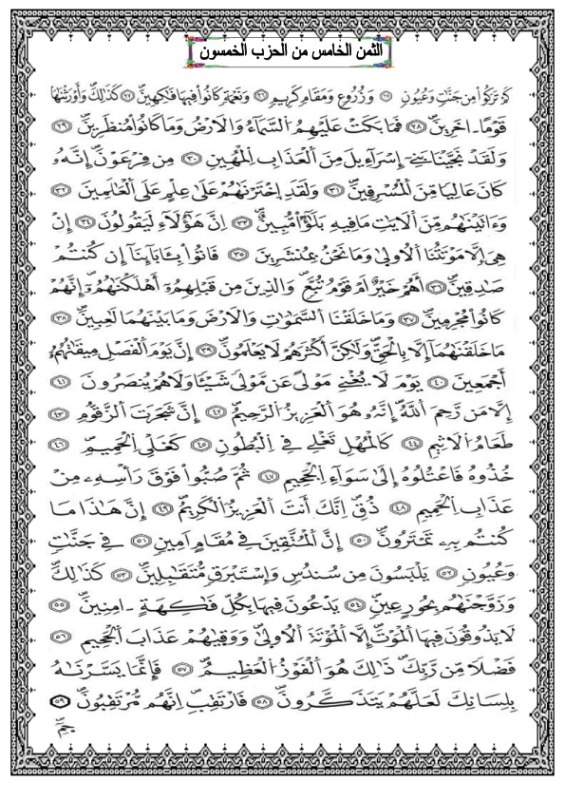 الثمن الخامس من الحزب الخمسون
كَمْ تَرَكُواْ مِن جَنَّٰتٍ وَعُيُونٍ وَزُرُوعٍ وَمَقَامٍ كَرِيمٍ ٢٦ وَنَعْمَةٍ كَانُواْ فِيهَا فَٰكِهِينَ ٢٧ كَذَٰلِكَ وَأَوْرَثْنَٰهَا
قَوْمًا ـ اخَرِينَ ٢٨ فَمَا بَكَتْ عَلَيْهِمُ السَّمَآءُ وَالَارْضُ وَمَا كَانُواْ مُنظَرِينَ ٢٩
وَلَقَدْ نَجَّيْنَا بَنِےٓ إِسْرَآءِيلَ مِنَ الْعَذَابِ الْمُهِينِ ٣٠ مِن فِرْعَوْنَ إِنَّهُۥ
كَانَ عَالِيًا مِّنَ الْمُسْرِفِينَ ٣١ وَلَقَدِ اِخْتَرْنَٰهُمْ عَلَىٰ عِلْمٍ عَلَى الْعَٰلَمِينَ ٣٢
وَءَاتَيْنَٰهُم مِّنَ الَايَٰتِ مَا فِيهِ بَلَٰٓؤٌاْ مُّبِينٌ ٣٣ إِنَّ هَٰٓؤُلَآءِ لَيَقُولُونَ ٣٤ إِنْ
هِيَ إِلَّا مَوْتَتُنَا الُاولَىٰ وَمَا نَحْنُ بِمُنشَرِينَ ٣٥ فَاتُواْ بِـَٔابَآئِنَآ إِن كُنتُمْ
صَٰدِقِينَ ٣٦ أَهُمْ خَيْرٌ اَمْ قَوْمُ تُبَّعٍ وَالذِينَ مِن قَبْلِهِمُۥٓ أَهْلَكْنَٰهُمُۥٓ إِنَّهُمْ
كَانُواْ مُجْرِمِينَ ٣٧ وَمَا خَلَقْنَا السَّمَٰوَٰتِ وَالَارْضَ وَمَا بَيْنَهُمَا لَٰعِبِينَ ٣٨
مَا خَلَقْنَٰهُمَآ إِلَّا بِالْحَقِّ وَلَٰكِنَّ أَكْثَرَهُمْ لَا يَعْلَمُونَ ٣٩ إِنَّ يَوْمَ الْفَصْلِ مِيقَٰتُهُمُۥٓ
أَجْمَعِينَ ٤٠ يَوْمَ لَا يُغْنِے مَوْلىً عَن مَّوْلىً شَيْـًٔا وَلَا هُمْ يُنصَرُونَ ٤١
إِلَّا مَن رَّحِمَ اللَّهُ إِنَّهُۥ هُوَ الْعَزِيزُ الرَّحِيمُ ٤٢ إِنَّ شَجَرَتَ الزَّقُّومِ ٤٣
طَعَامُ الَاثِيمِ ٤٤ كَالْمُهْلِ تَغْلِے فِے الْبُطُونِ ٤٥ كَغَلْيِ الْحَمِيمِ ٤٦
خُذُوهُ فَاعْتُلُوهُ إِلَىٰ سَوَآءِ الْجَحِيمِ ٤٧ ثُمَّ صُبُّواْ فَوْقَ رَأْسِهِۦ مِنْ
عَذَابِ الْحَمِيمِ ٤٨ ذُقِ اِنَّكَ أَنتَ الْعَزِيزُ الْكَرِيمُ ٤٩ إِنَّ هَٰذَا مَا
كُنتُم بِهِۦ تَمْتَرُونَ ٥٠ إِنَّ الْمُتَّقِينَ فِے مُقَامٍ اَمِينٍ ٥١ فِے جَنَّٰتٍ
وَعُيُونٍ ٥٢ يَلْبَسُونَ مِن سُندُسٍ وَإِسْتَبْرَقٍ مُّتَقَٰبِلِينَ ٥٣ كَذَٰلِكَ
وَزَوَّجْنَٰهُم بِحُورٍ عِينٍ ٥٤ يَدْعُونَ فِيهَا بِكُلِّ فَٰكِهَةٍ ـ اٰمِنِينَ ٥٥
لَا يَذُوقُونَ فِيهَا الْمَوْتَ إِلَّا الْمَوْتَةَ الُاولَىٰ وَوَقَىٰهُمْ عَذَابَ الْجَحِيمِ ٥٦
فَضْلًا مِّن رَّبِّكَ ذَٰلِكَ هُوَ الْفَوْزُ الْعَظِيمُ ٥٧ فَإِنَّمَا يَسَّرْنَٰهُ
بِلِسَانِكَ لَعَلَّهُمْ يَتَذَكَّرُونَ ٥٨ فَارْتَقِبِ اِنَّهُم مُّرْتَقِبُونَ ٥٩